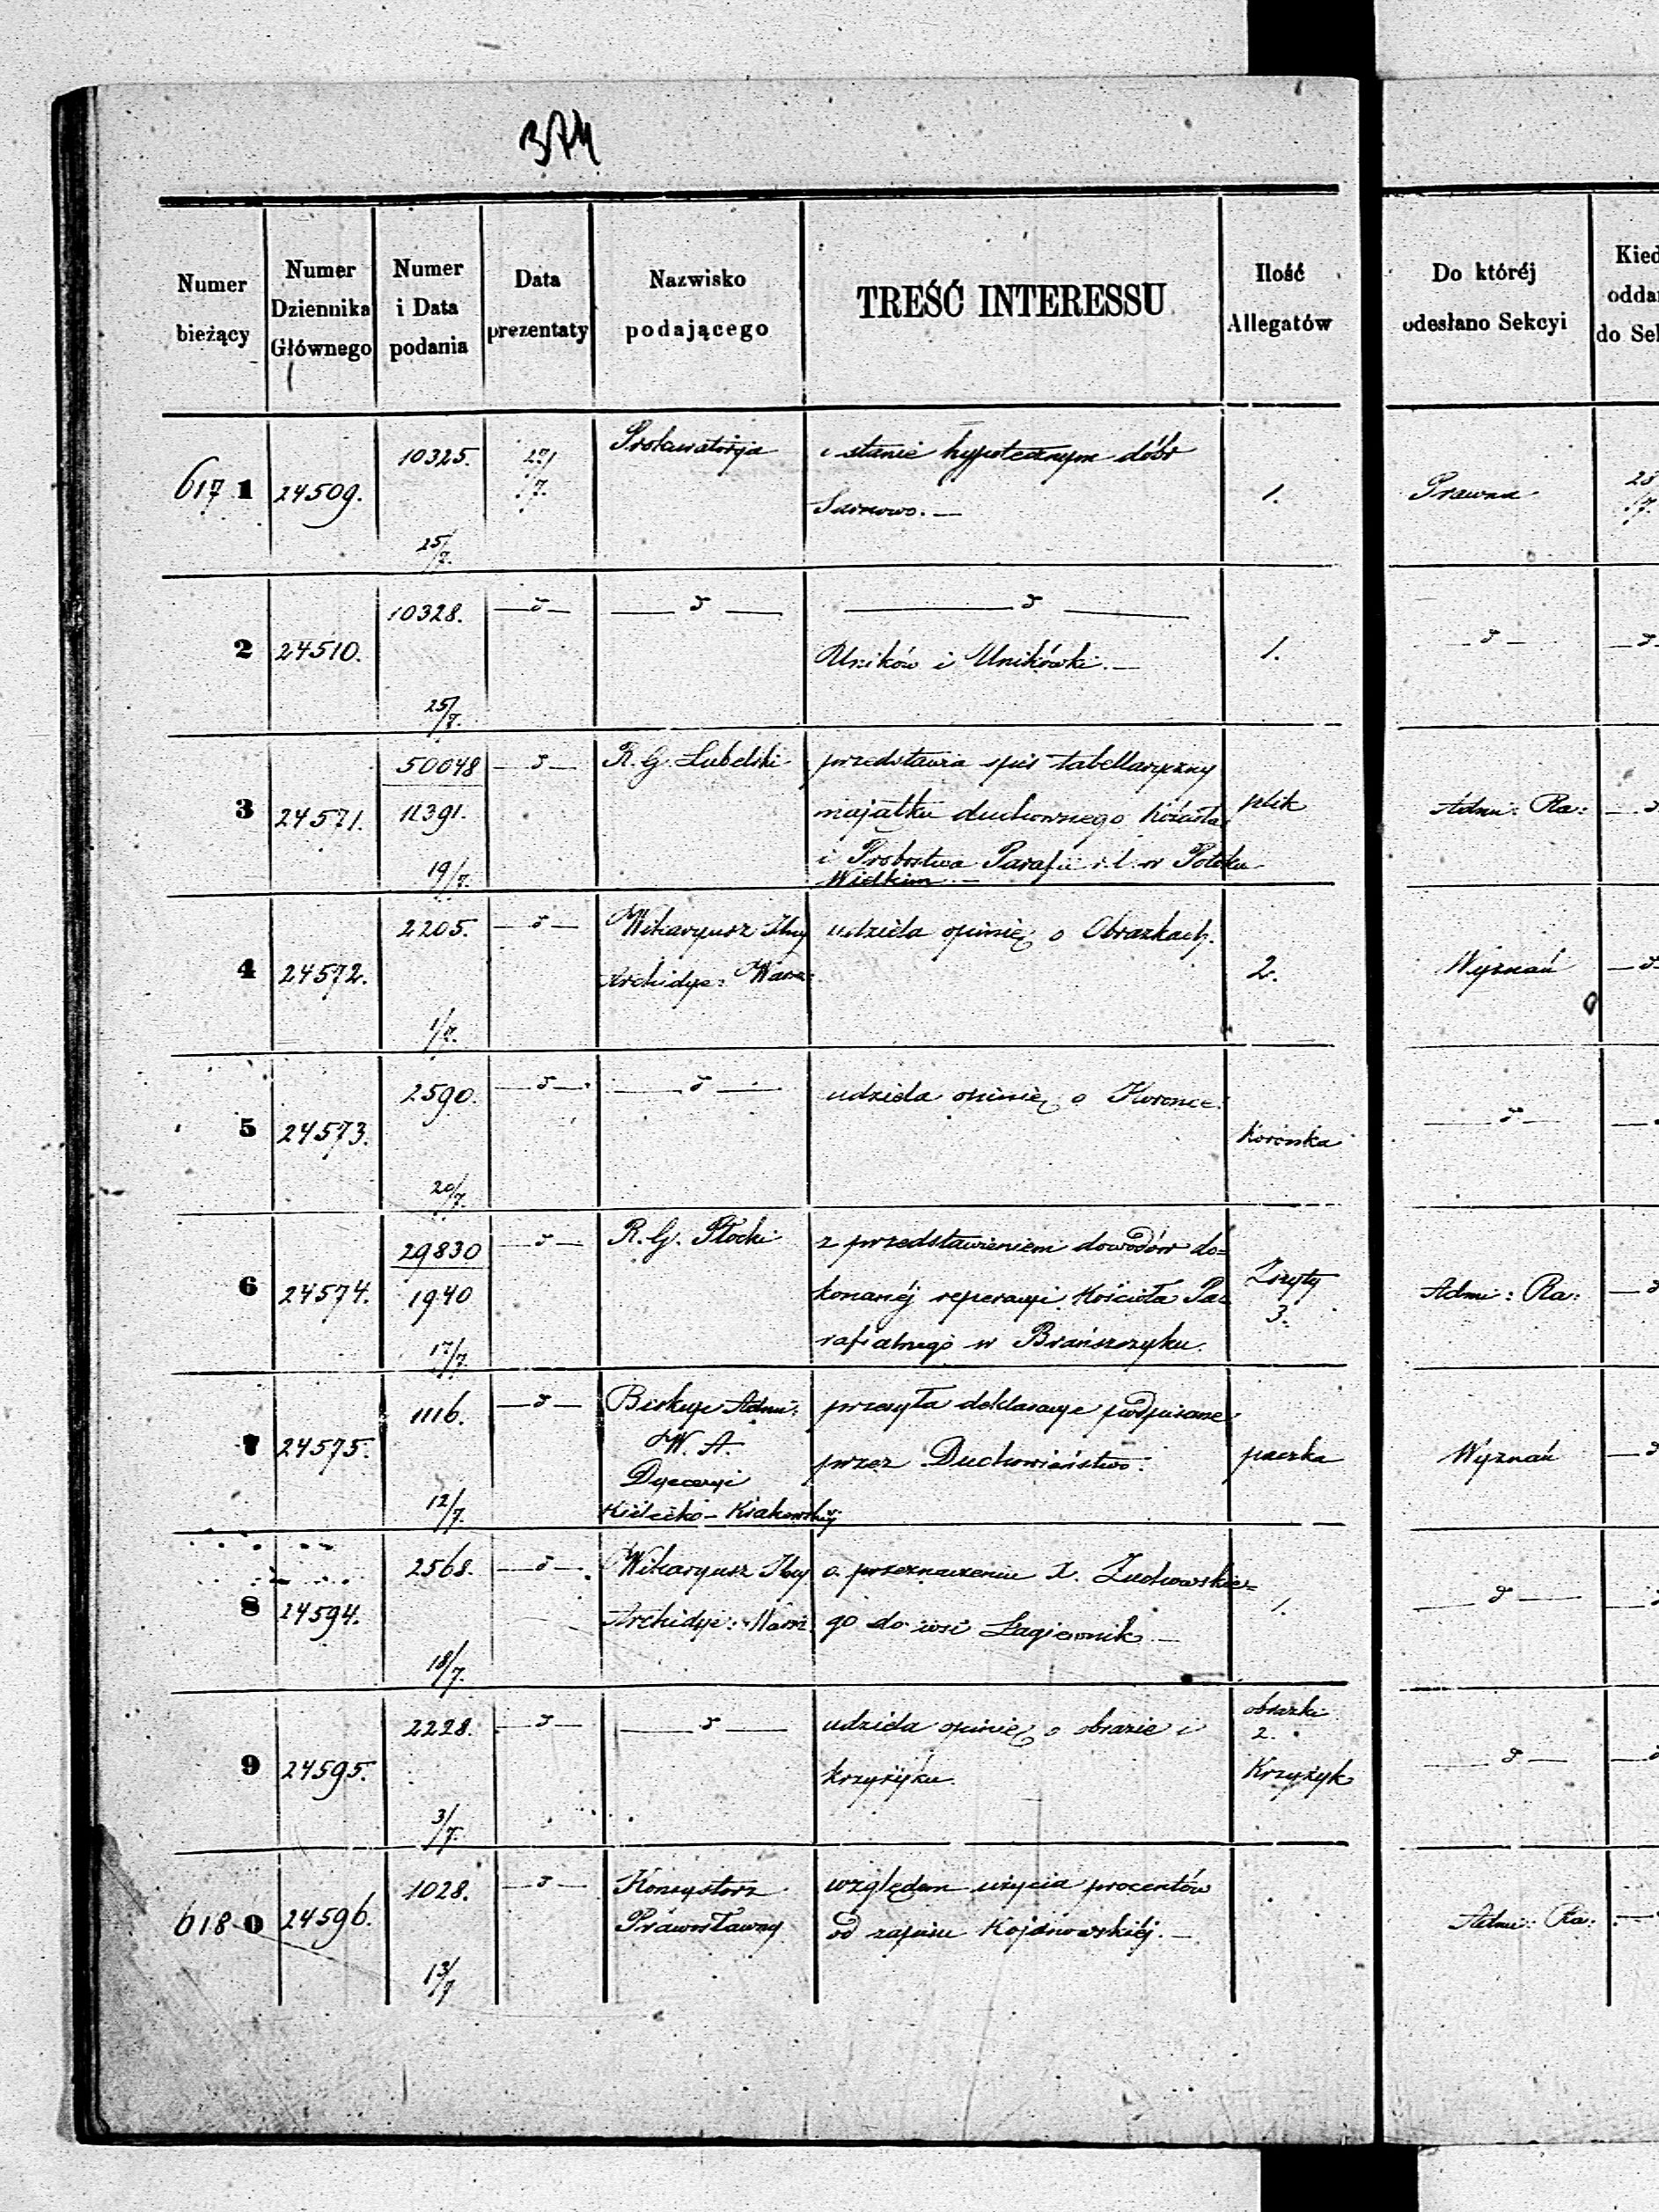 374
Numer bieżący
Numer Dziennika Głównego
Numer i Data podania
Data prezentaty
Nazwisko podającego
TREŚĆ INTERESSU
Ilość Allegatów
Do któréj odesłano Sekcyi
Kied
oddan
do Sek
617 1 24509. 10325. 25/7. 27/7. Prokuratorja
o stanie hypotecznym dóbr
Sarnowo. —
1. Prawna 28/7.
2 24510. 10328. 25/7. — d — — d — — d —
Uników i Unikówki. —
1. — d — — d
3 24571. 50048 11391. 19/7. — d — R. G. Lubelski
przedstawia spis tabellaryczny
majątku duchownego kościoła
i Probostwa Parafii r. l. w Potoku
Wielkim —
plik Adm: Ra: — d
4 24572. 2205. 1/7. — d — Wikaryusz Jlny
Archidye: Warsz:
udziela opinię o Obrazkach.
2. Wyznań — d
5 24573. 2590. 20/7. — d — — d —
udziela opinię o Koronce.
Koronka — d — —
6 24574. 29830 1940 17/7. — d — R. G. Płocki
z przedstawieniem dowodów do=
konanéj reperacyi Kościoła Pa
rafialnego w Brańszczyku.
Zszyty
3. Adm: Ra: — d
7 24575. 1116. 12/7. — d — Biskup Adm:
W. A.
Dyecezyi
Kielecko - Krakowskiéj
przesyła deklaracye podpisane
przez Duchowieństwo.
paczka Wyznań — d
8 24594. 2568. 18/7. — d — Wikaryusz Jlny
Archidye: Warsz.
o przeznaczeniu X. Żuchowskie=
go do wsi Łagiewnik —
1. — d — —
9 24595. 2228. 3/7. — d — — d —
udziela opinię o obrazie i
krzyżyku.
obrazki
2.
Krzyżyk — d — — d
618 0 24596. 1028. 13/7 — d — Konsystorz
Prawosławny
względem użycia procentów
od zapisu Kojanowskiéj. —
Adm: Ra: —